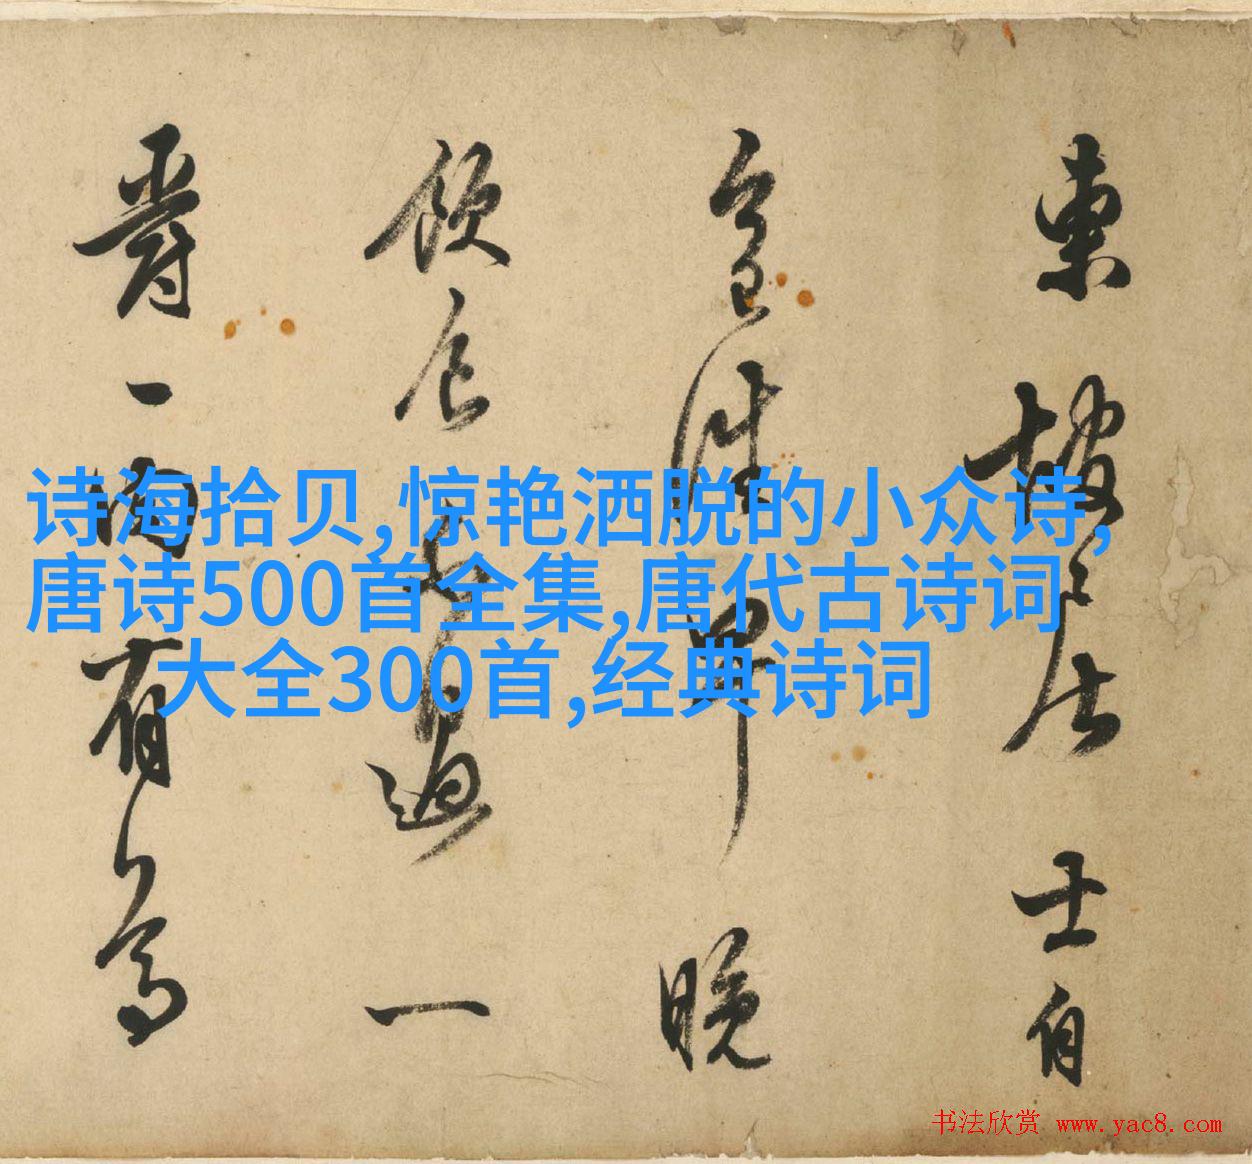 東坡居士自
今日往早晚
飲食不過一
爵一肉有
诗海拾贝,惊艳洒脱的小众诗,
唐诗500首全集,唐代古诗词
大全300首,经典诗词
书法欣赏 www.yac8.com